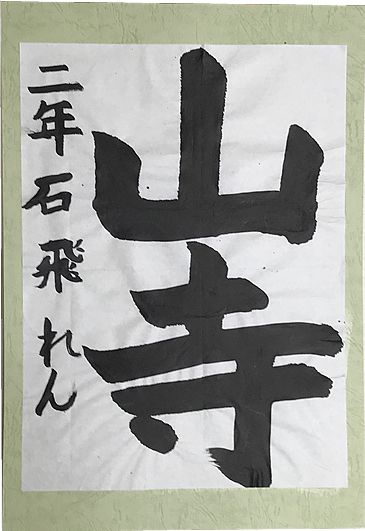 山寺
二年 石飛 れん